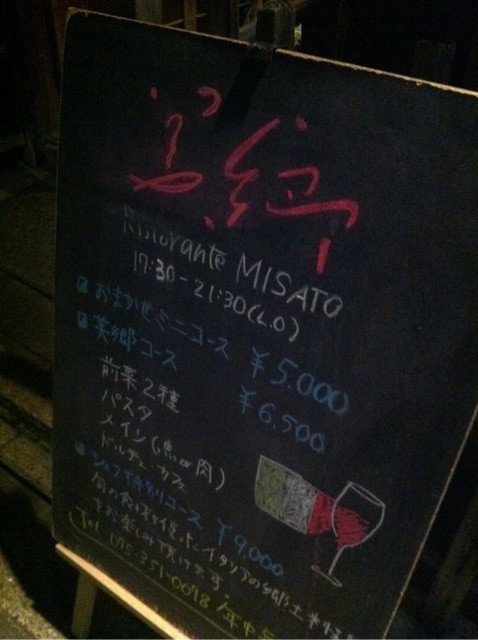 Ristorante MISATO
17:30-21:30(L.O)
おまかせミニコース ¥5.000
美郷コース ¥6.500
前菜2種
パスタ
メイン(魚or肉)
ドルチェ・カフェ
シェフ特別コース ¥9.000
旬の食材を使ったイタリアの郷土料理
をお楽しみ頂けます。
Tel 075-351-0098 年中